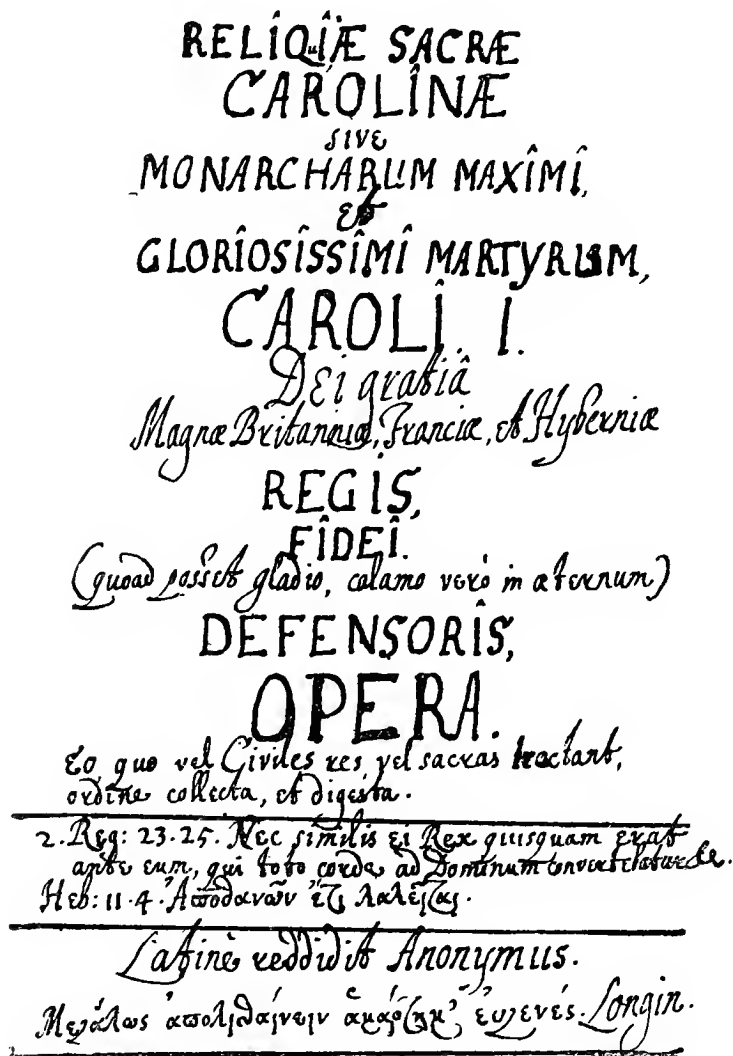 RELIQuIÆ SACRÆ
CAROLINÆ
SIVE
MONARCHARUM MAXIMI,
et
GLORIOSISSIMI MARTYRUM,
CAROLI. I.
DEi gratiâ
Magnæ Britanniæ, Franciæ, et Hyberniæ
REGIS,
FIDEI.
(quoad posset gladio, calamo verò in æternum)
DEFENSORIS,
OPERA.
Eo quo vel Civiles res vel sacras tractant,
ordine collecta, et digesta.
2. Reg: 23.25. Nec similis ei Rex quisquam erat
ante eum, qui toto corde ad Dominum converteba­tur &c.
Heb: 11.4. Ἀποθανῶν ἔτι λαλεῖται.
Latinè reddidit Anonymus.
Μεγάλως ἀπολισθαίνειν εὐγενές. Longin.